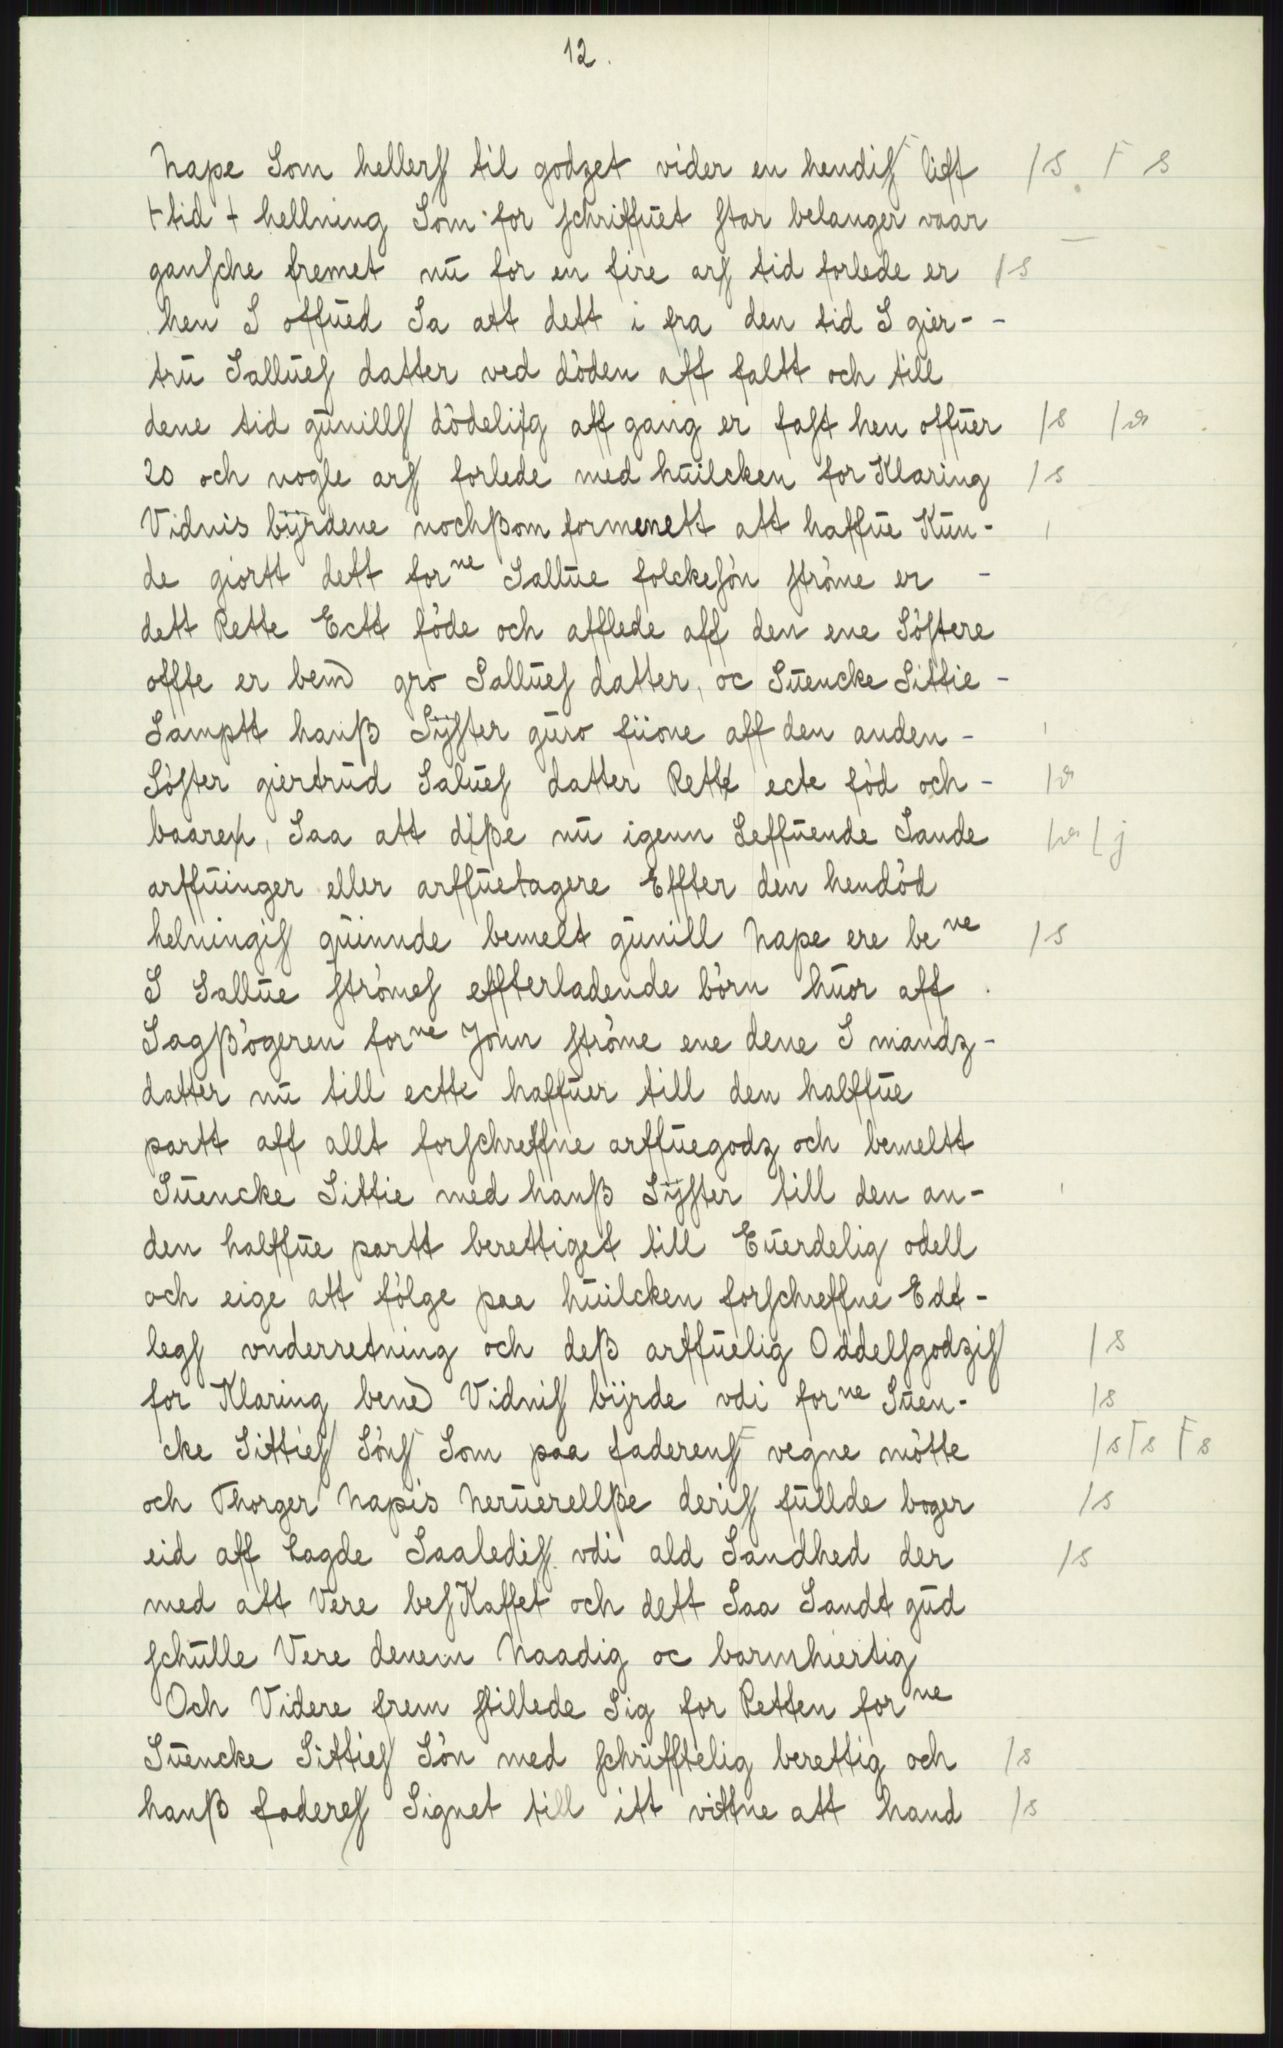 12.
Nape Som hellerſ til godzet vider en hendiſ lifft /s. Γ s
+ tid + hellning Som for ſchriffuet ſtar belanger vaar
ganſche fremet nu for en fire arſ tid forlede er /s
hen S offued Sa att dett i fra den tid S gier-
tru Sallueſ datter ved döden aff faltt och till
dene tid gunillſ dödelig aff gang er faſt hen offuer /s
20 och nogle arſ forlede med huilcken for Klaring /s
Vidnis bÿrdene nochßom formenett att haffue Kun-
de giortt dett forne Sallue folckeſön ſtröme er -
dett Rette Ectt föde och afflede aff den ene Söſtere
offte er bem) gro Sallueſ datter, oc Suencke Sittie -
Samptt hanß Sÿſter guro fiione aff den anden -
Söſter giertrud Salueſ datter Rett ecte föd och -
baaren, Saa att diße nu igenn Leffuende Sande
arffuinger eller arffuetagere Effter den hendöd
helningiſ quinnde bemelt gunill Nape ere bene /s
S Sallue ſtrömeſ effterladende börn huor aff
Sagßögeren forne Jonn ſtröme ene dene S mandz-
datter nu till ectte haffuer till den halffue
partt aff allt forſchreffne arffuegodz och bemeltt
Suencke Sittie med hanß Sÿſter till den an-
den halffue partt berettiget till Euerdelig odell
och eige att fölge paa huilcken forſchreffne Edt-
legſ vnderretning och deß arffuelig Oddelſgodziſ /s
for Klaring bene) Vidniſ bÿrde vdi forne Suen- /s
cke Sittieſ Sönſ Som paa faderenſ vegne mötte /s Γs Γs
och Thorger Napis Neruerellße deriſ fullde boger /s
eid aff Lagde Saalediſ vdi ald Sandhed der /s
med att Vere beſKaffet och dett Saa Sandt gud
ſchulle Vere denem Naadig oc barmhiertig
Och Videre frem ſtillede Sig for Retten forne
Suencke Sittieſ Sön med ſchrifftelig berettig och /s
hanß fadereſ Signet till itt vittne att hand /s